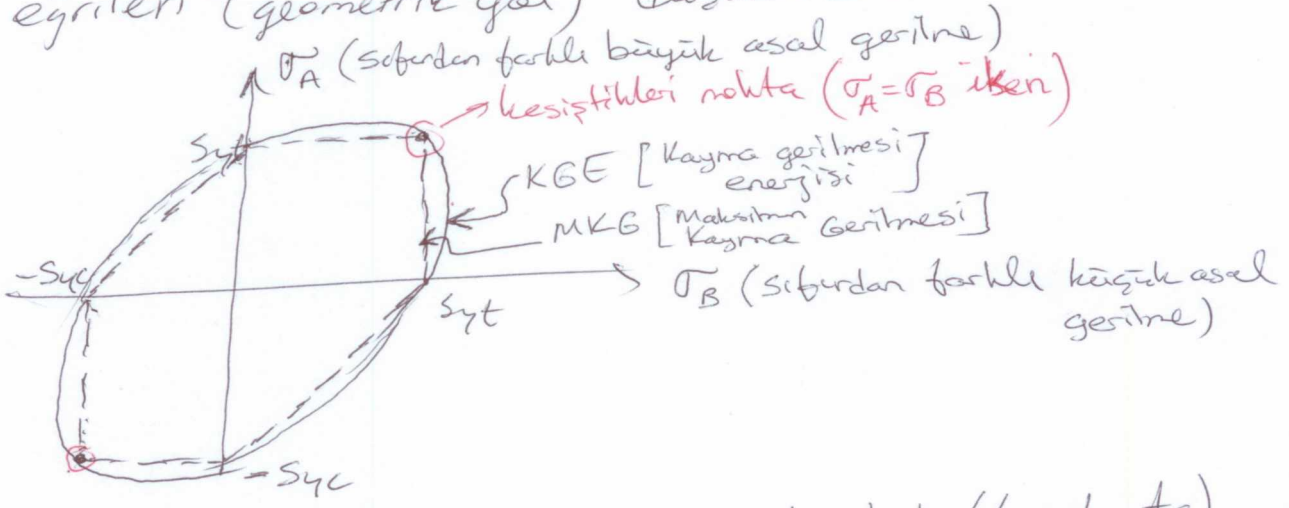 eğrileri (geometrik yer)
σA (sıfırdan farklı büyük asal gerilme)
kesiştikleri nokta (σA = σB iken)
Syt
KGE [Kayma gerilmesi enerjisi]
MKG [Maksimum Kayma Gerilmesi]
-Syc
σB (sıfırdan farklı küçük asal
gerilme)
Syt
-Syc